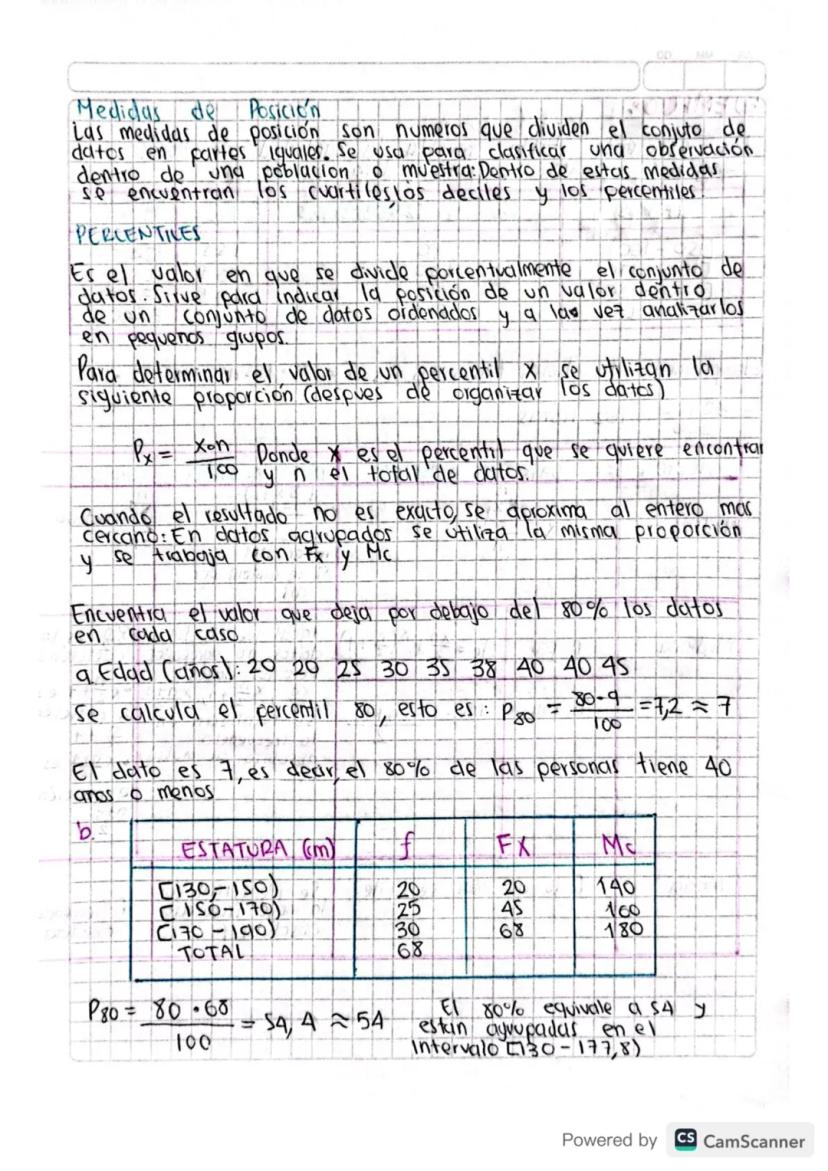 Medidas de Posición
Las medidas de posición son numeros que dividen el conjuto de
datos en partes iguales. Se usa para clasificar una observación
dentro de una poblacion o muestra: Dentro de estas medidas
se encuentran los cuartiles, los deciles y los percentiles.
PERCENTILES
Es el valor en que se divide porcentualmente el conjunto de
datos. Sirve para indicar la posición de un valor dentro
de un conjunto de datos ordenados y a la vez analizarlos
en pequenos grupos.
Para determinar el valor de un percentil x se utilizan la
siguiente proporción (despues de organizar los datos)
Px = x•n / 100 Donde x es el percentil que se quiere encontrar
y n el total de datos.
Cuando el resultado no es exacto, se aproxima al entero mas
cercano: En datos agrupados se utiliza la misma proporción
y se trabaja con Fx y Mc
Encuentra el valor que deja por debajo del 80% los datos
en cada caso
a Edad (años): 20 20 25 30 35 38 40 40 45
se calcula el percentil 80, esto es: P80 = 80•9 / 100 = 7,2 ≈ 7
El dato es 7, es decir, el 80% de las personas tiene 40
anos o menos
b.
ESTATURA (cm) f FX Mc
[130 - 150) 20 20 140
[150 - 170) 25 45 160
[170 - 190) 30 68 180
TOTAL 68
P80 = 80 • 68 / 100 = 54,4 ≈ 54 El 80% equivale a 54 y
están agrupadas en el
intervalo [130 - 177,8)
Powered by CS CamScanner